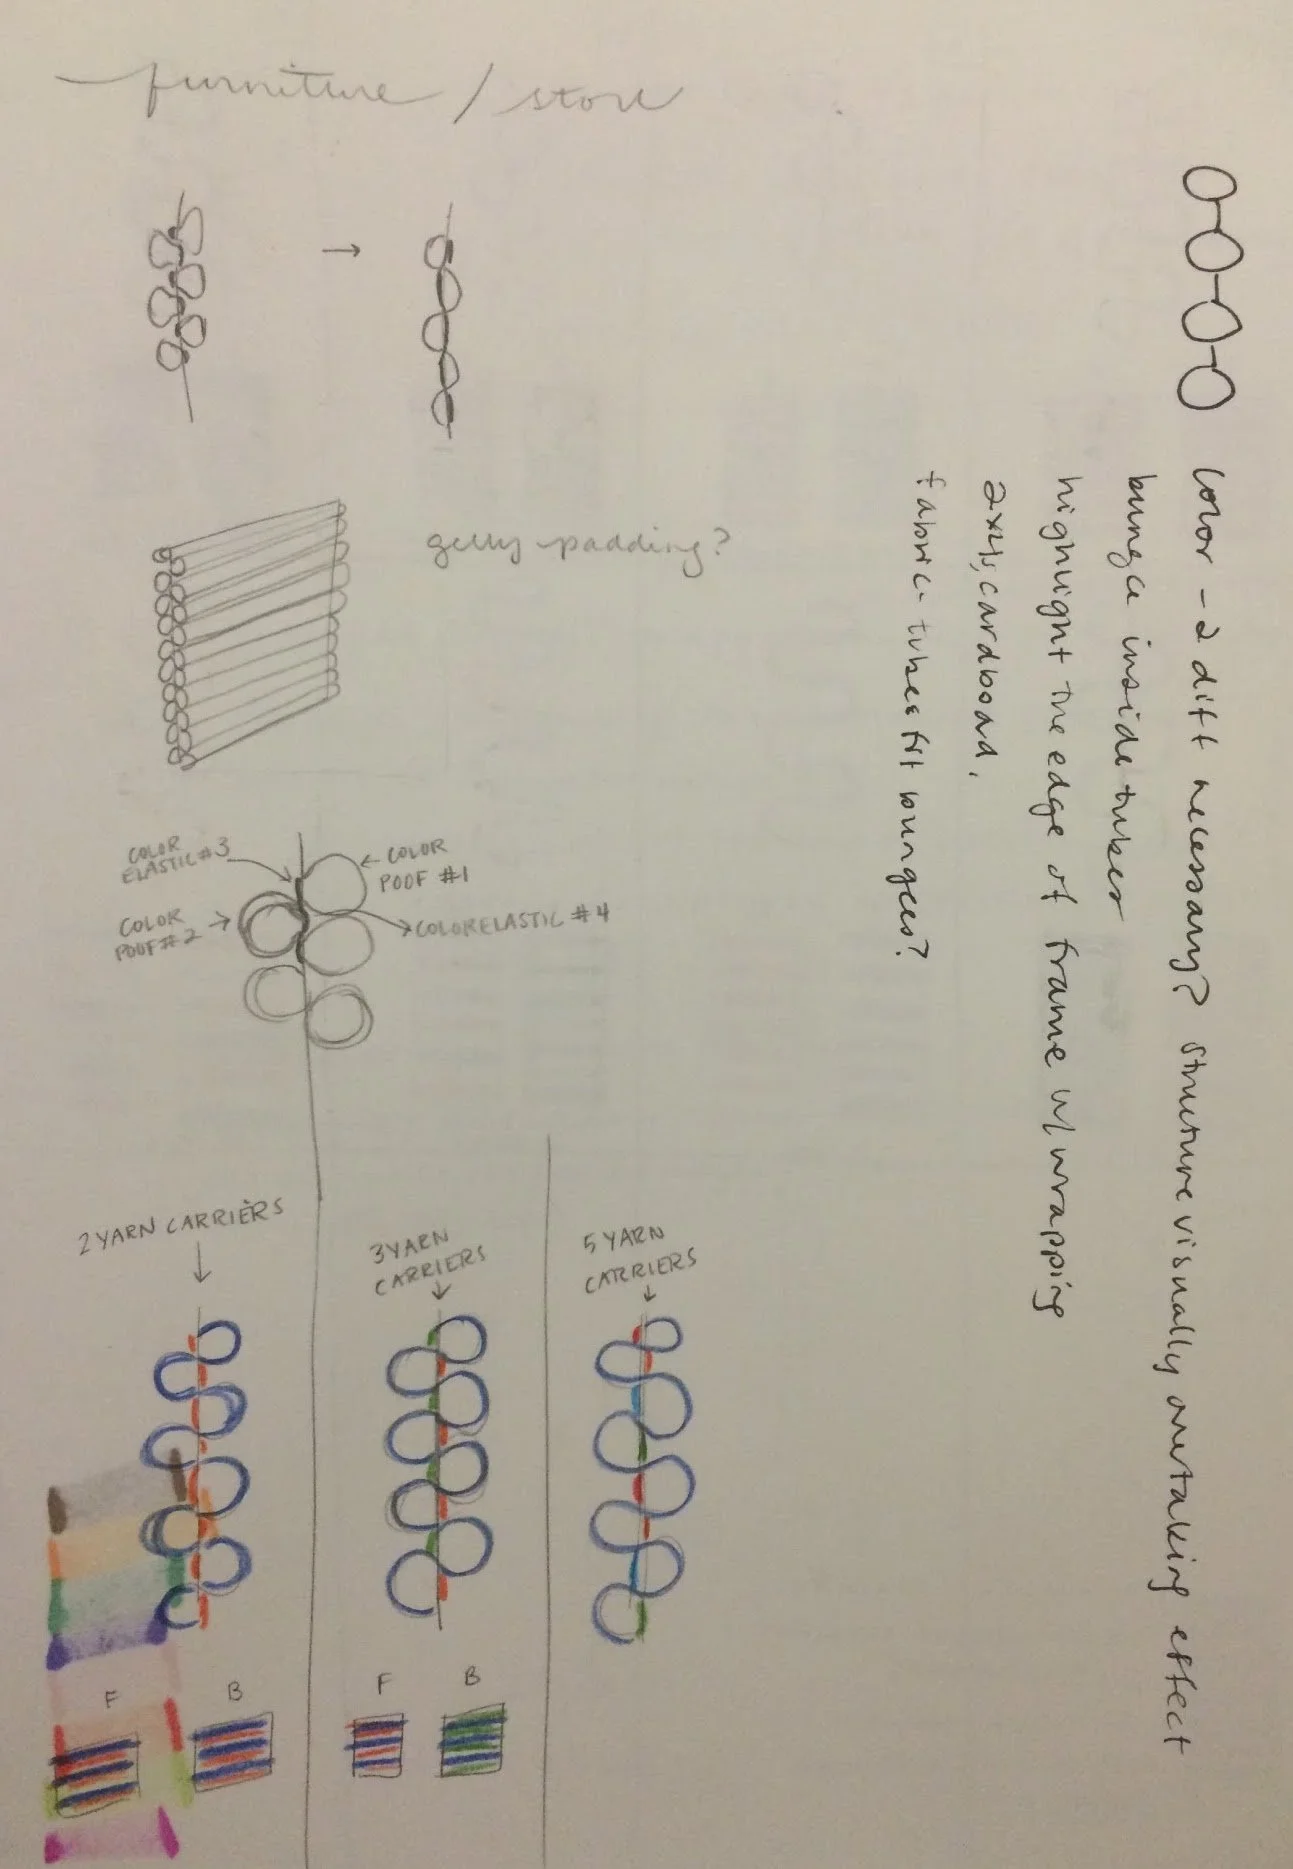 furniture / store
gelly padding?
COLOR
ELASTIC #3
COLOR
POOF #1
COLOR
POOF #2
COLOR ELASTIC #4
2 YARN CARRIERS
3 YARN
CARRIERS
5 YARN
CARRIERS
F
B
F
B
color - 2 diff necessary? structure visually overtaking effect
bungee inside tubes
highlight the edge of frame w/ wrapping
2x4s, cardboard,
fabric tubes fit bungees?